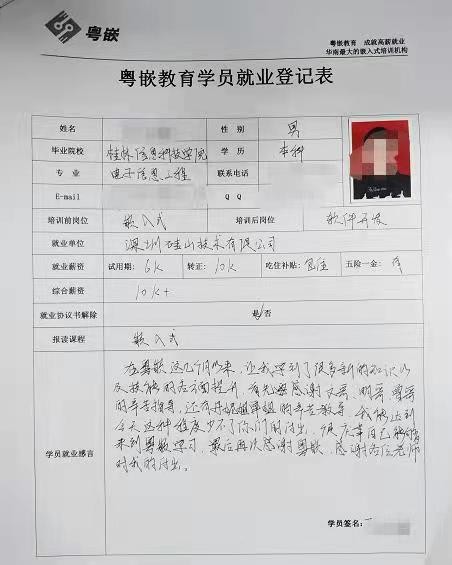 粤嵌
粤嵌教育 成就高薪就业
华南最大的嵌入式培训机构
粤嵌教育学员就业登记表
姓名 性别 男
毕业院校 桂林信息科技学院 学历 本科
专业 电子信息工程 联系电话
E-mail QQ
培训前岗位 嵌入式 培训后岗位 软件开发
就业单位 深圳硅山技术有限公司
就业薪资 试用期: 6k 转正: 10k 吃住补贴: 包住 五险一金: 有
综合薪资 10k+
就业协议书解除 是/否
报读课程 嵌入式
在粤嵌这几个月以来,让我学到了很多新的知识以
及技能的各方面提升,首先要感谢文哥、明哥、曾哥
的辛苦指导,还有丹妮姐 的辛苦教导,我能达到
今天这种程度少不了你们的付出,很庆幸自己能够
来到粤嵌学习,最后再次感谢粤嵌,感谢各位老师
对我的付出。
学员就业感言
学员签名: